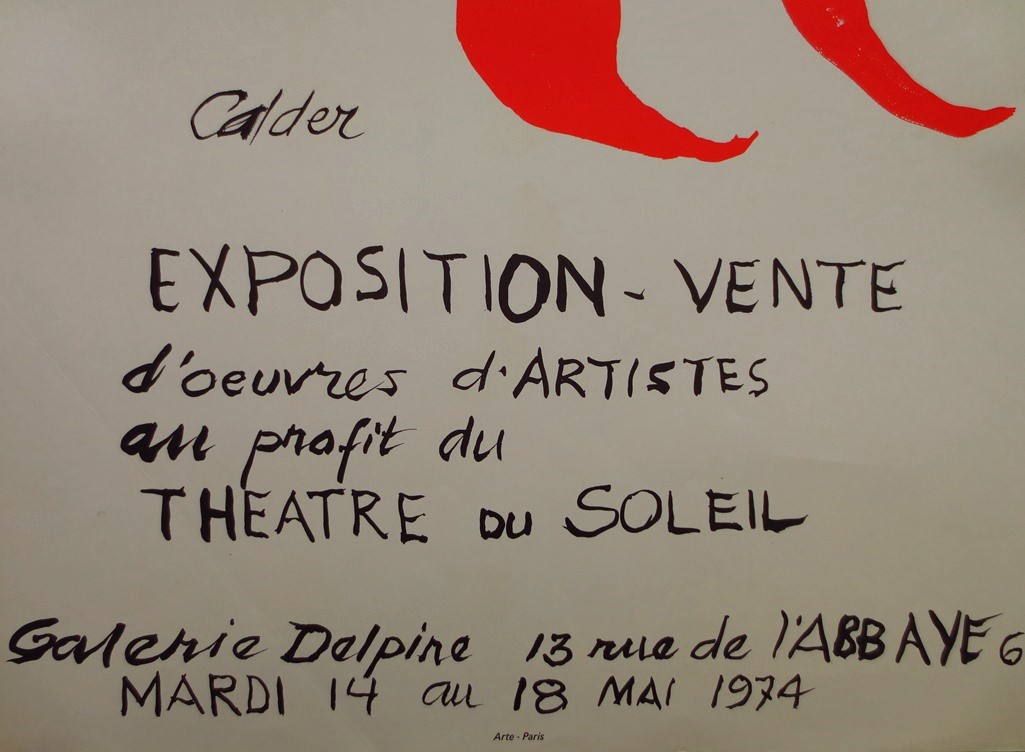 Calder
EXPOSITION - VENTE
d'oeuvres d'ARTISTES
au profit du
THEATRE DU SOLEIL
Galerie Delpire 13 rue de l'ABBAYE 6
MARDI 14 au 18 MAI 1974
Arte - Paris